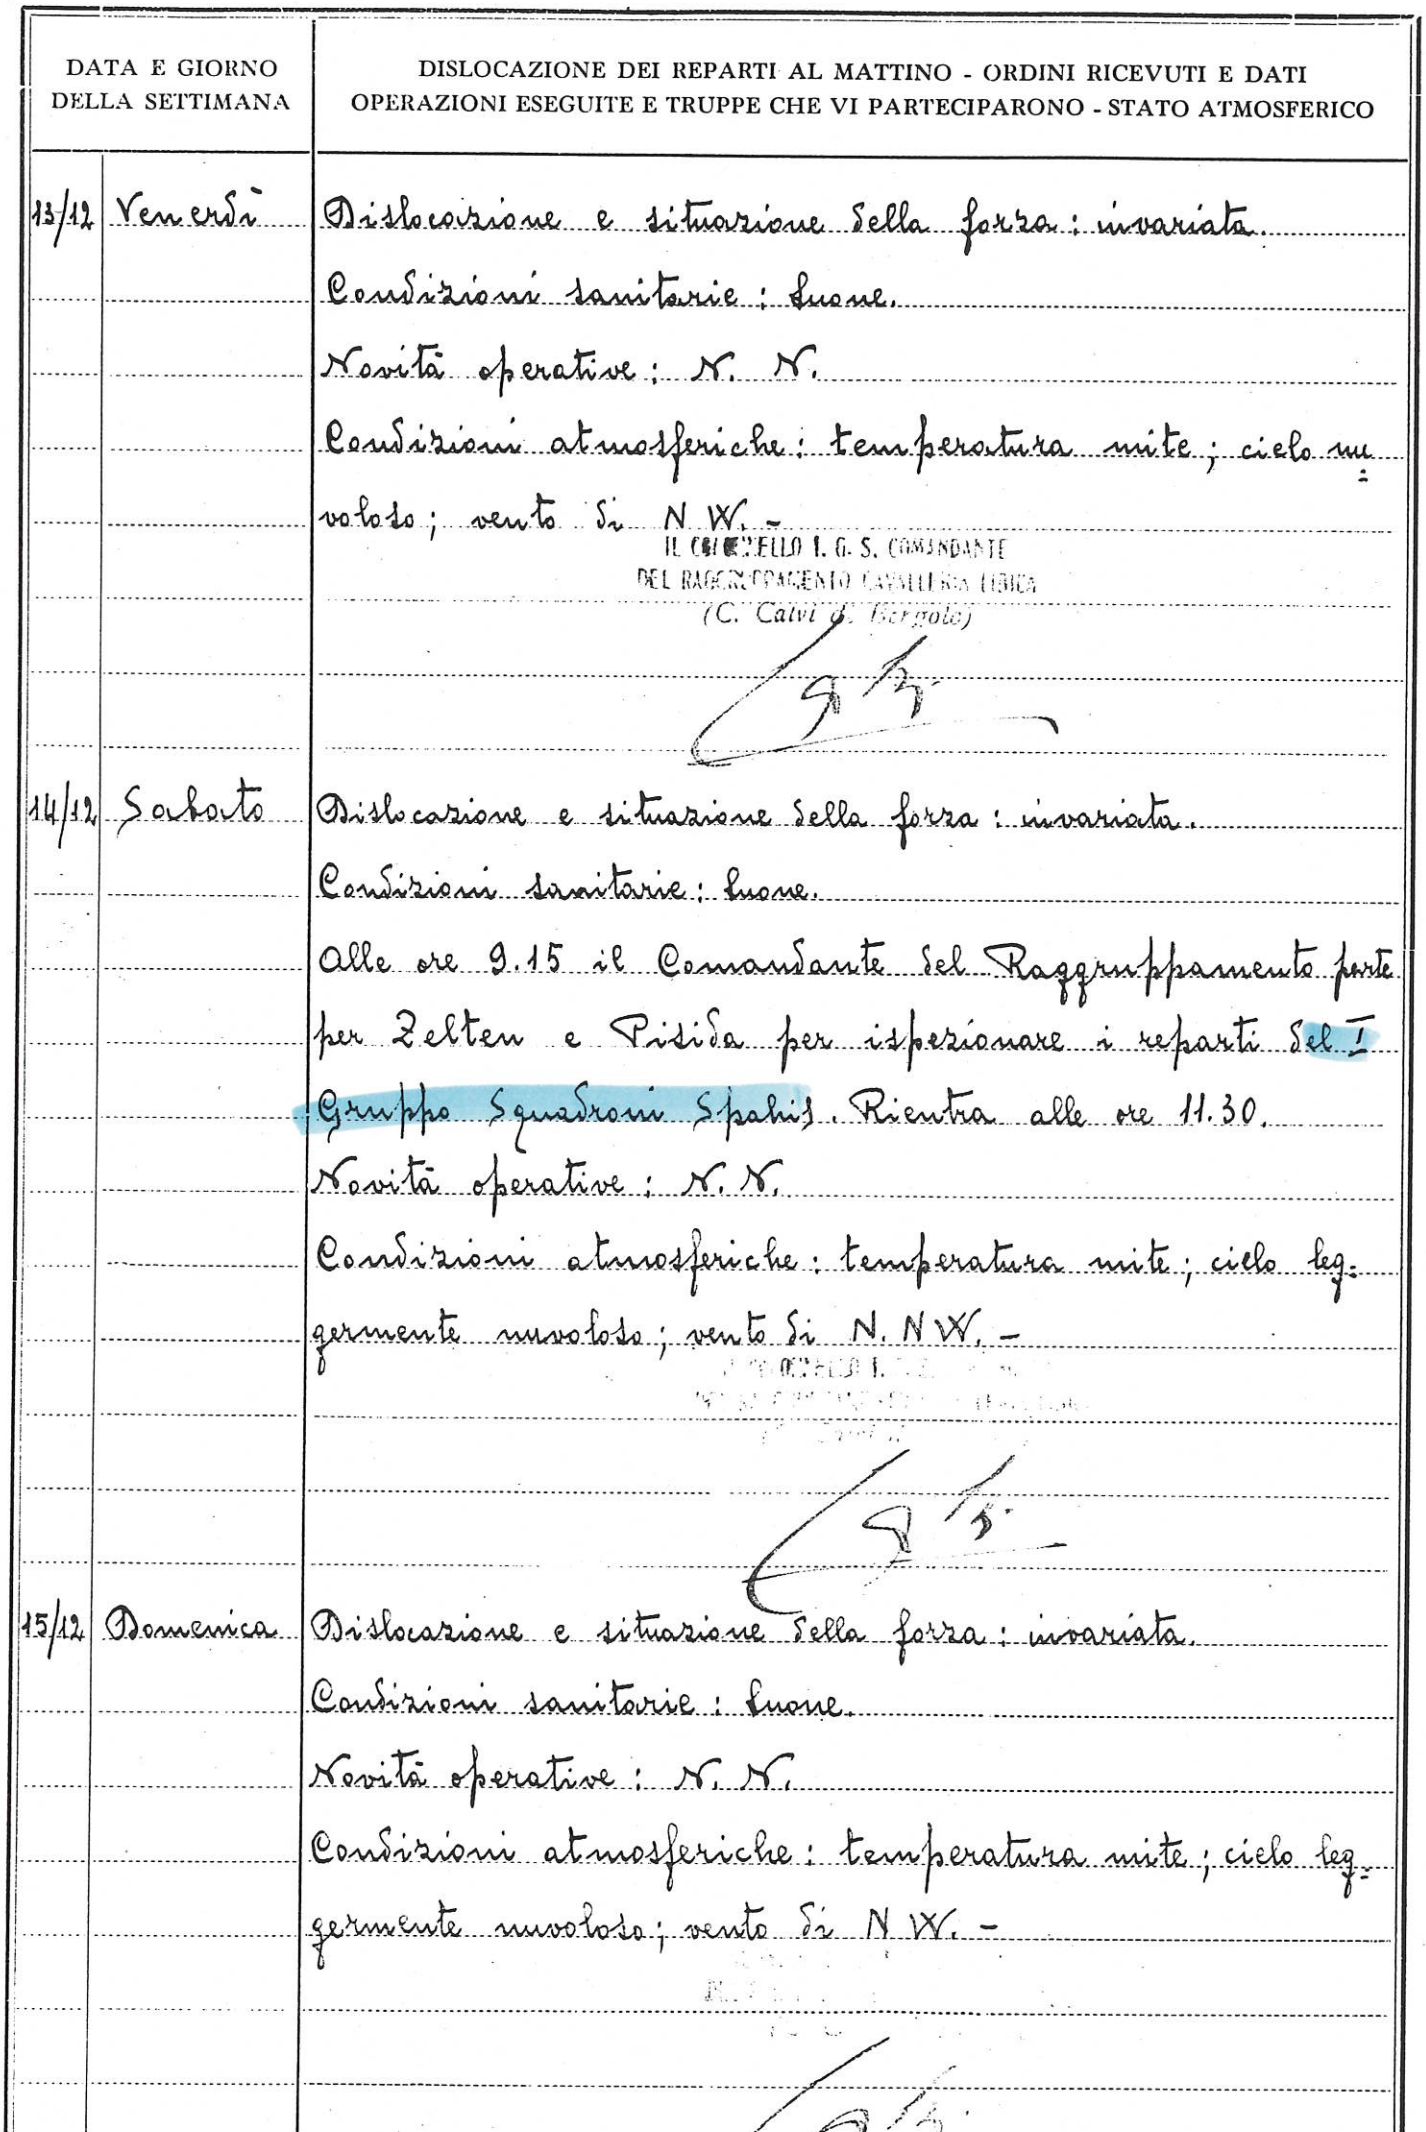 DATA E GIORNO
DELLA SETTIMANA
DISLOCAZIONE DEI REPARTI AL MATTINO - ORDINI RICEVUTI E DATI
OPERAZIONI ESEGUITE E TRUPPE CHE VI PARTECIPARONO - STATO ATMOSFERICO
13/12 Venerdì Dislocazione e situazione della forza: invariata.
Condizioni sanitarie: buone.
Novità operative: N. N.
Condizioni atmosferiche: temperatura mite; cielo nu=
voloso; vento di N W. -
IL COLONNELLO I. G. S. COMANDANTE
DEL RAGGRUPPAMENTO CAVALLERIA LIBICA
(C. Calvi di Bergolo)
14/12 Sabato Dislocazione e situazione della forza: invariata.
Condizioni sanitarie: buone.
Alle ore 9.15 il Comandante del Raggruppamento parte
per Zelten e Pisida per ispezionare i reparti del I
Gruppo Squadroni Spahis. Rientra alle ore 11.30.
Novità operative: N. N.
Condizioni atmosferiche: temperatura mite; cielo leg=
germente nuvoloso; vento di N. N W. -
15/12 Domenica Dislocazione e situazione della forza: invariata.
Condizioni sanitarie: buone.
Novità operative: N. N.
Condizioni atmosferiche: temperatura mite; cielo leg=
germente nuvoloso; vento di N W. -